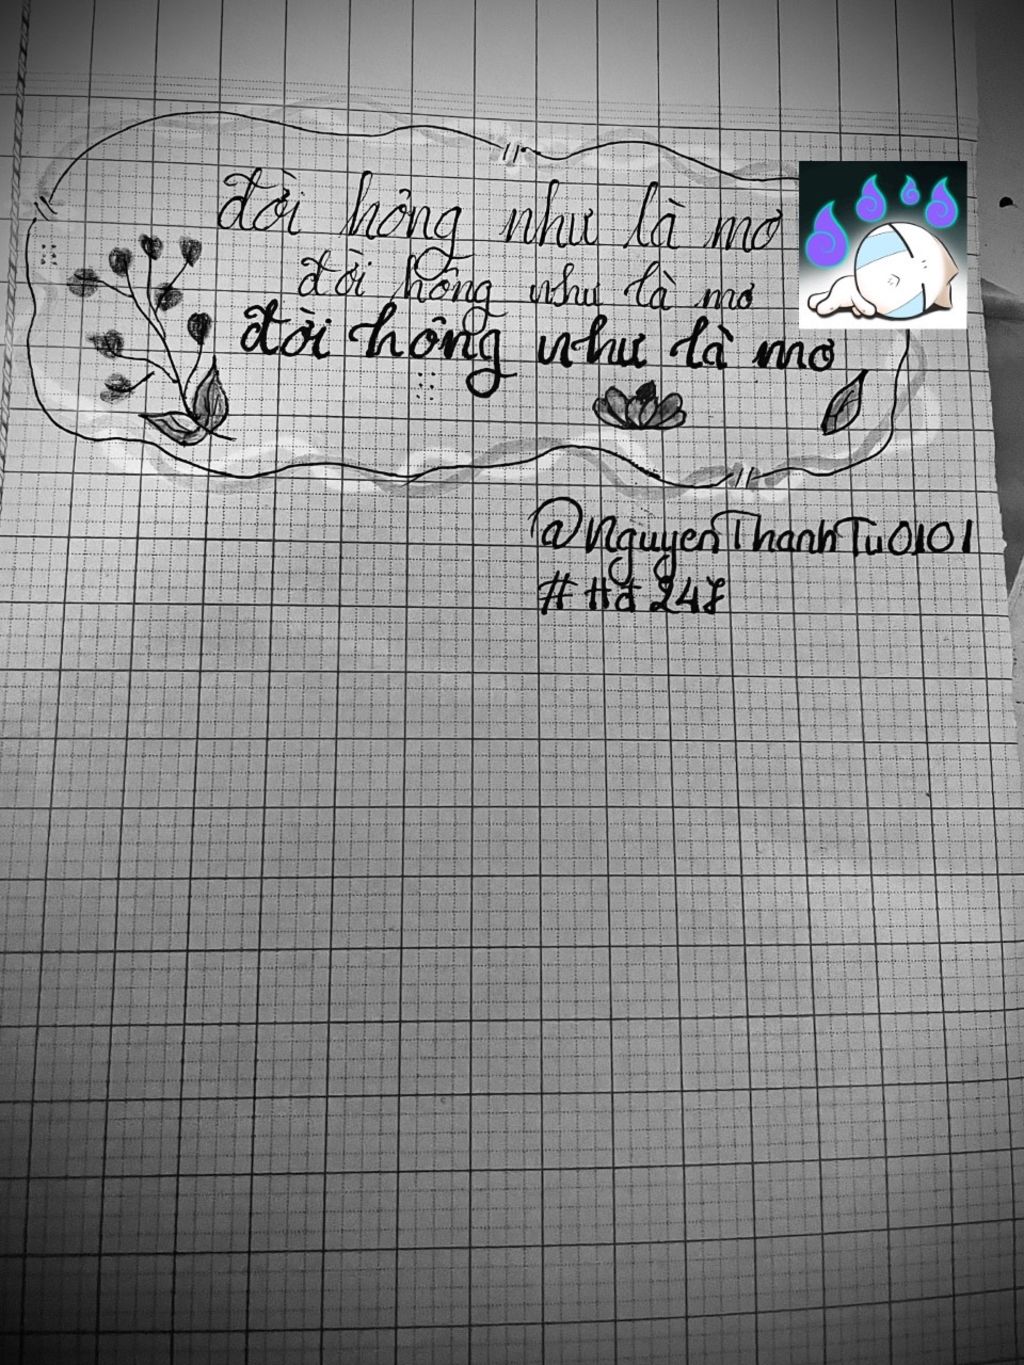 đời hông như là mơ
đời hông như là mơ
đời hông như là mơ
@NguyenThanhTu0101
#Hd247